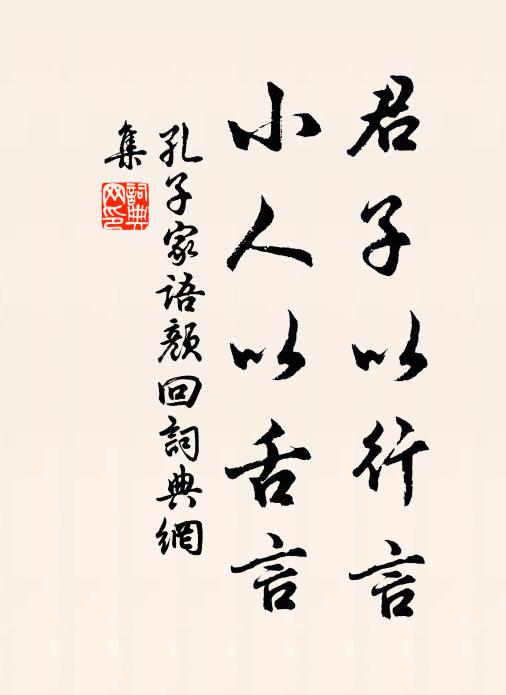 君子以行言
小人以舌言
孔子家语颜回詞典網
集
詞典
网印